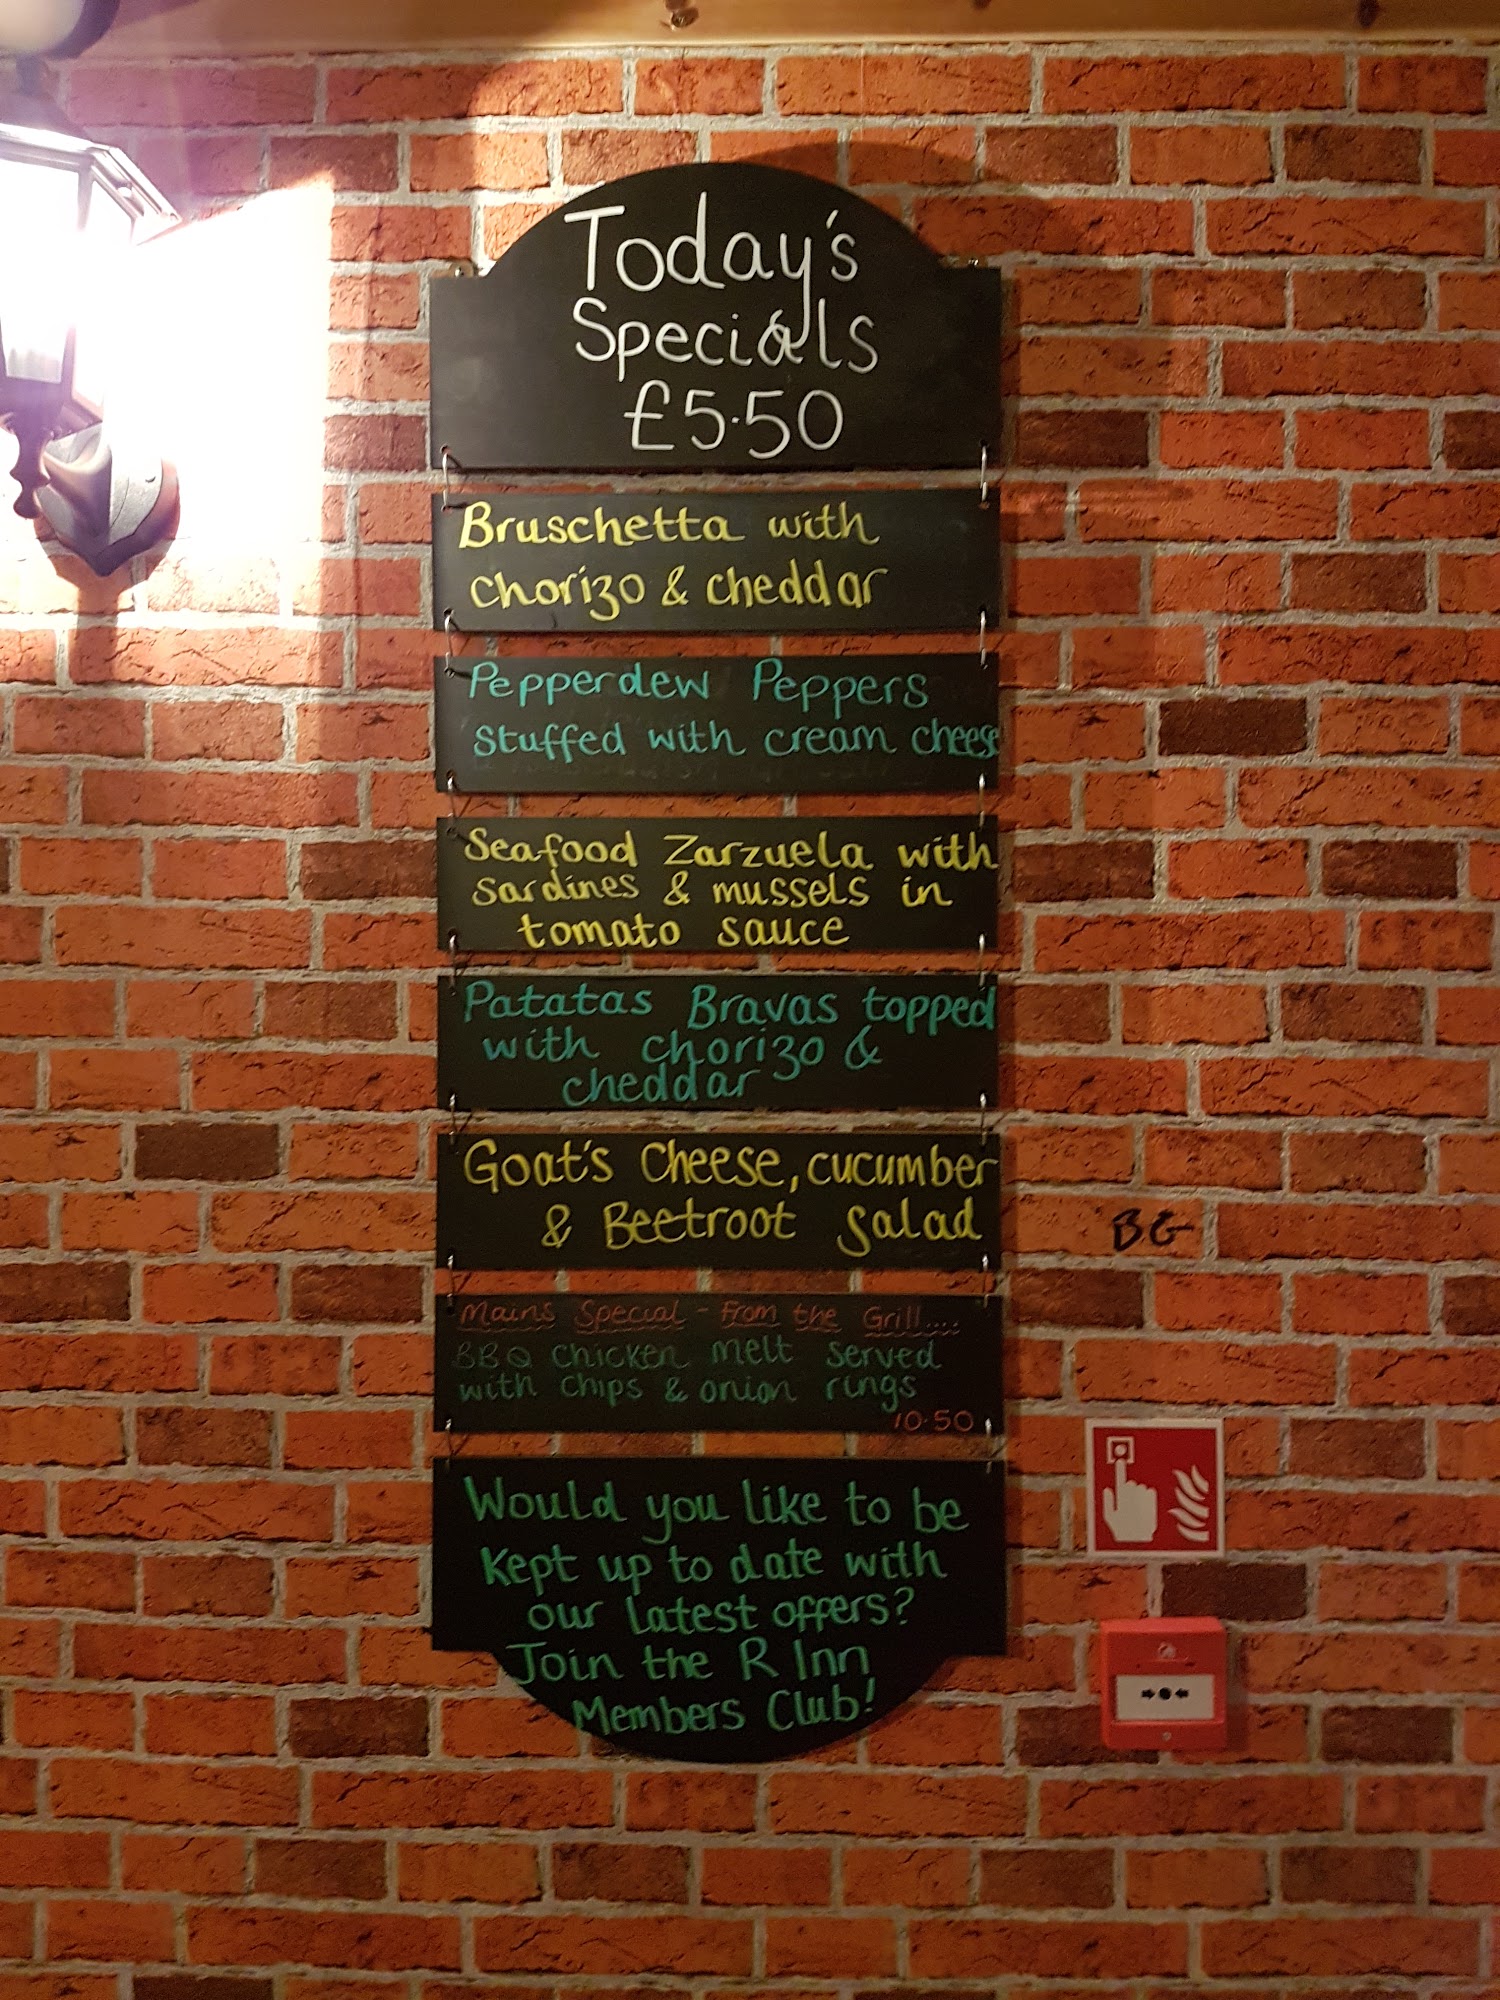 Today's
Specials
£5.50
Bruschetta with
chorizo & cheddar
Pepperdew Peppers
stuffed with cream cheese
Seafood Zarzuela with
sardines & mussels in
tomato sauce
Patatas Bravas topped
with chorizo &
cheddar
Goat's Cheese, cucumber
& Beetroot salad
BG
Mains Special - From the Grill....
BBQ chicken melt served
with chips & onion rings
10.50
Would you like to be
kept up to date with
our latest offers?
Join the R Inn
Members Club!